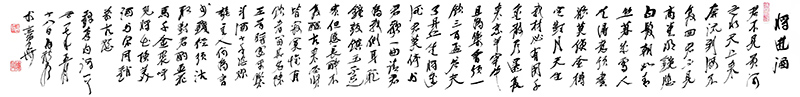 将進酒
君不見黄河
之水天上来
奔流到海不
復回君不見
高堂明鏡悲
白髮朝如青
絲暮成雪人
生得意須盡
歡莫使金樽
空對月天生
我材必有用
千金散盡還復
来烹羊宰牛
且為樂會須一
飲三百杯岑夫
子丹丘生将進
酒君莫停與
君歌一曲請君
為我傾耳聽
鐘鼓饌玉不足
貴但願長醉不
願醒古来聖賢
皆寂寞惟有
飲者留其名陳
王昔時宴平樂
斗酒十千恣歡
謔主人何為言
少錢徑須沽
取對君酌五花
馬千金裘呼
兒将出換美
酒與爾同銷
萬古愁